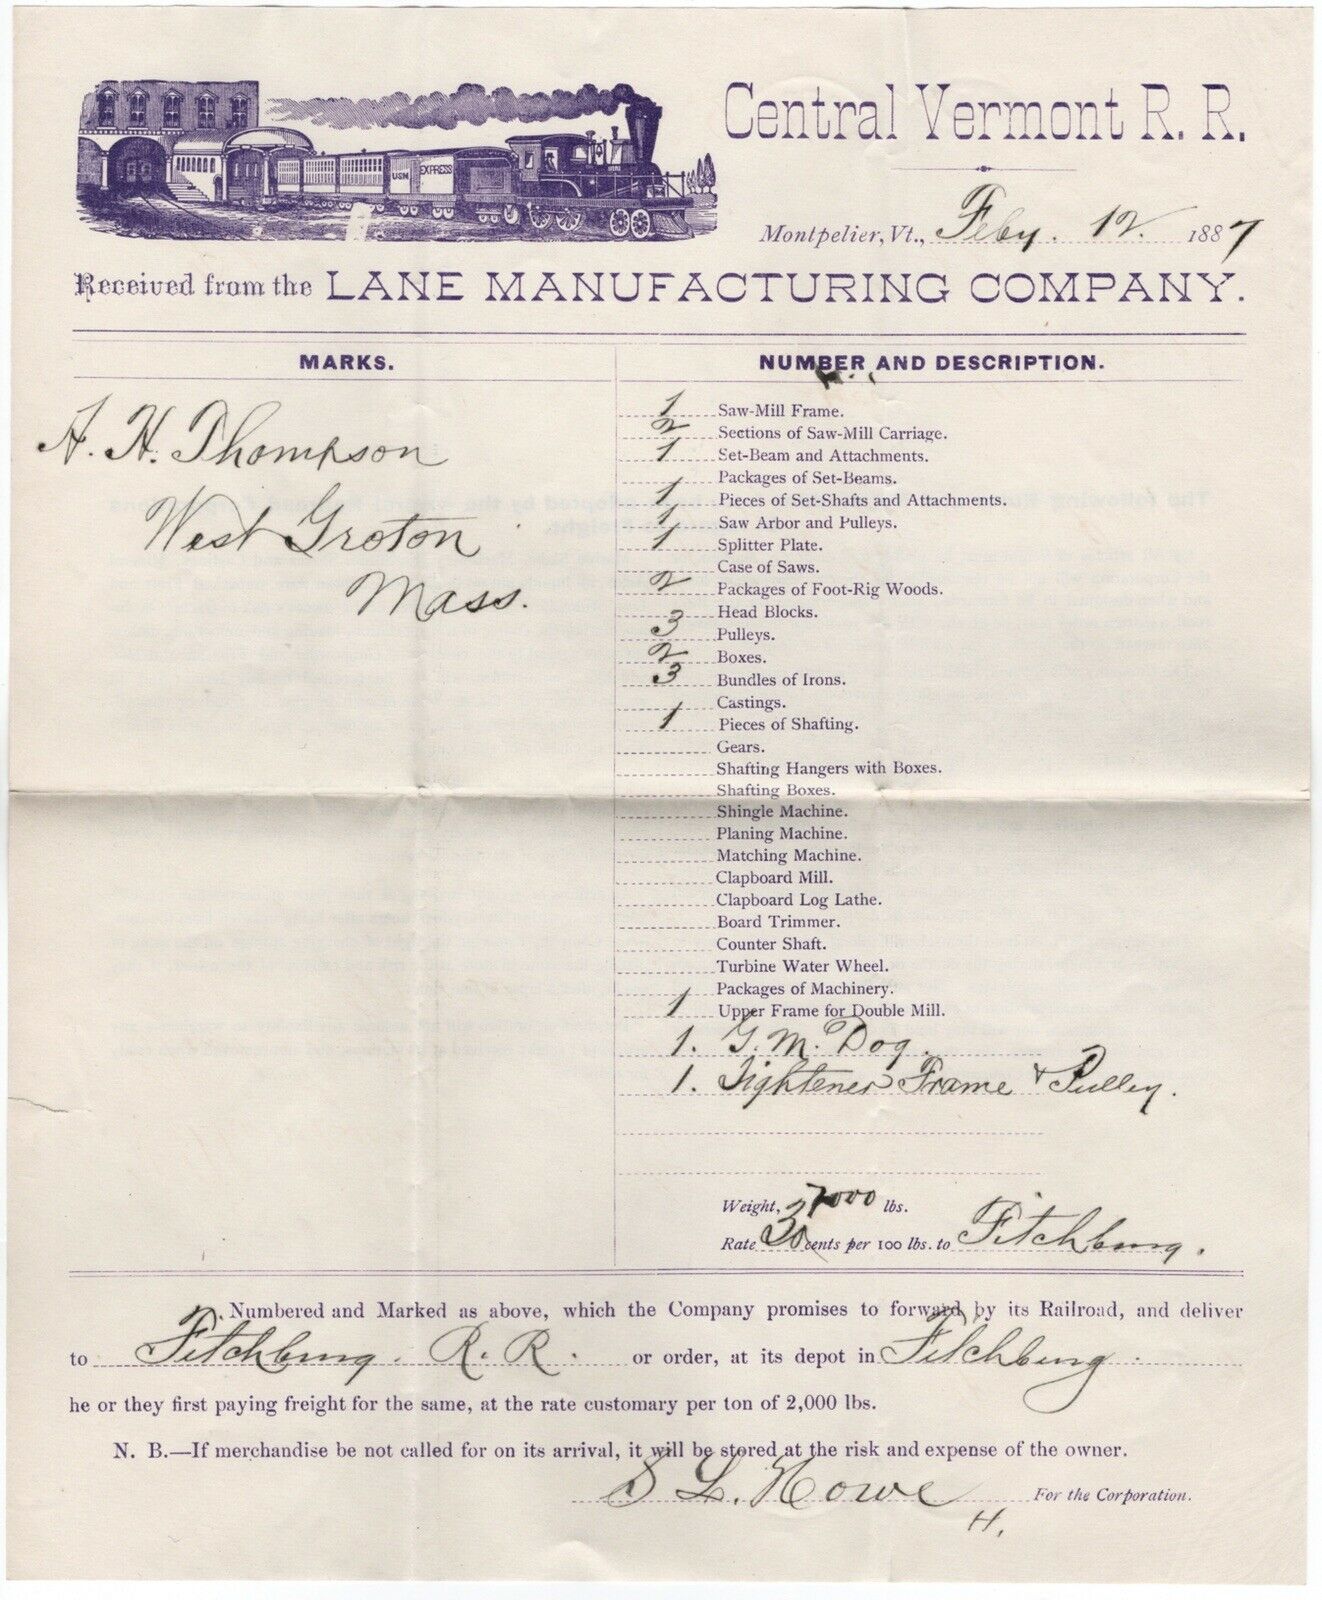 Central Vermont R. R.
USM EXPRESS
Montpelier, Vt., Feby. 12. 1887
Received from the LANE MANUFACTURING COMPANY.
MARKS.
A. H. Thompson
West Groton
Mass.
NUMBER AND DESCRIPTION.
1 Saw-Mill Frame.
2 Sections of Saw-Mill Carriage.
1 Set-Beam and Attachments.
Packages of Set-Beams.
1 Pieces of Set-Shafts and Attachments.
1 Saw Arbor and Pulleys.
1 Splitter Plate.
Case of Saws.
2 Packages of Foot-Rig Woods.
Head Blocks.
3 Pulleys.
2 Boxes.
3 Bundles of Irons.
Castings.
1 Pieces of Shafting.
Gears.
Shafting Hangers with Boxes.
Shafting Boxes.
Shingle Machine.
Planing Machine.
Matching Machine.
Clapboard Mill.
Clapboard Log Lathe.
Board Trimmer.
Counter Shaft.
Turbine Water Wheel.
Packages of Machinery.
1 Upper Frame for Double Mill.
1. G. M. Dog.
1. Tightener Frame & Pulley.
Weight, lbs.
Rate 30 cents per 100 lbs. to Fitchburg.
Numbered and Marked as above, which the Company promises to forward by its Railroad, and deliver
to Fitchburg. R. R. or order, at its depot in Fitchburg.
he or they first paying freight for the same, at the rate customary per ton of 2,000 lbs.
N. B.—If merchandise be not called for on its arrival, it will be stored at the risk and expense of the owner.
S L. Howe For the Corporation.
H.